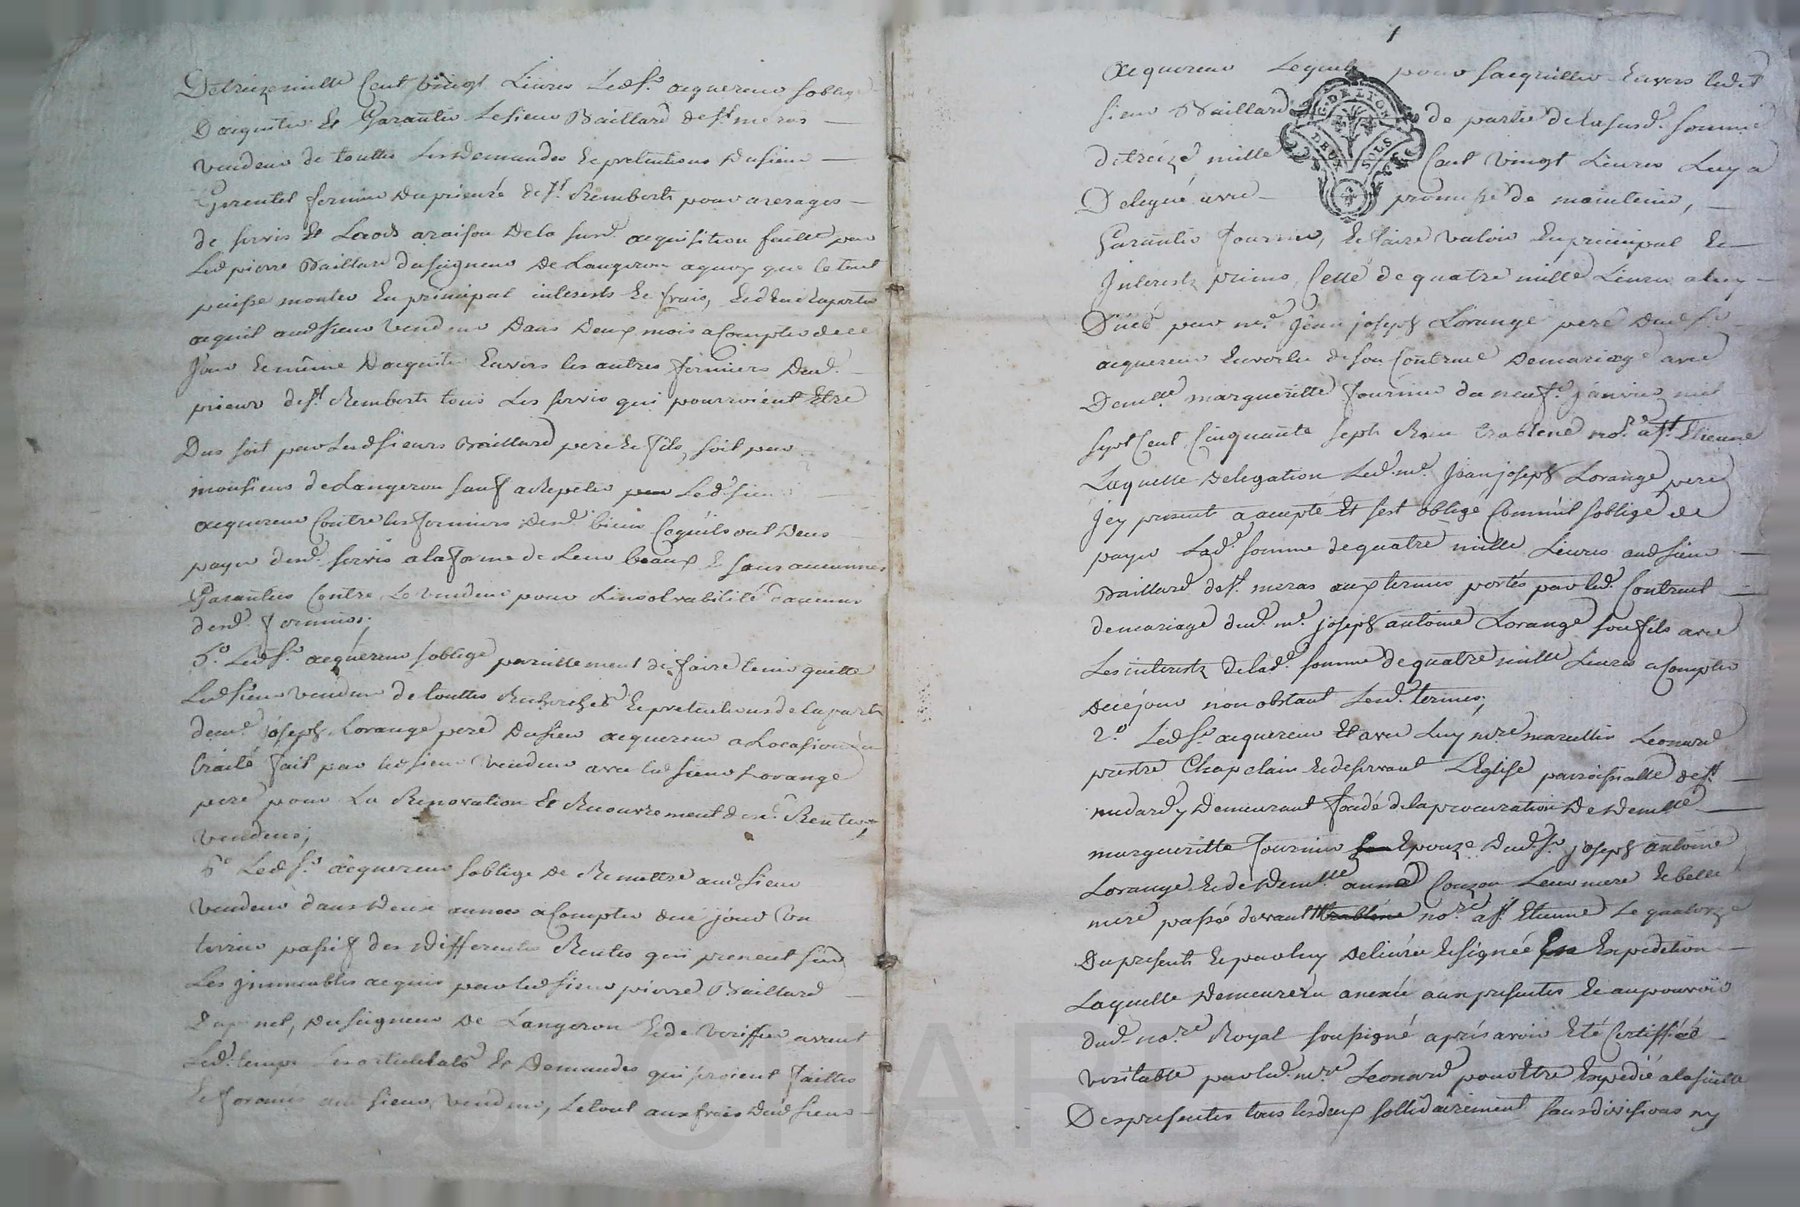 De treize mille Cent vingt Livres Led. Sr. acquereur soblige
Dacquitter Et Garantir Lesieur Baillard de St. meras
vendeur de touttes Les Demandes Et pretentions Dusieur
Gerentet fermier Du prieuré de St. Rembert pour arerages
de servis Et Laods araison Dela susd. acquisition faitte par
Led. pierre Baillard du seigneur De Langeron a quoy que le tout
puisse monter En principal interests Et frais, Et d'En raporter
acquit aud. sieur vendeur Dans Deux mois a Compter de ce
Jour Et même Dacquitter Envers les autres fermiers Dud.
prieur de St. Rembert tous Les servis qui pourroient Etre
Dus soit par Lesd. sieurs Baillard pere Et fils, soit par
monsieur de Langeron sauf a Repeter Led. sieur
acquereur Contre les fermiers Desd. biens Ce qu'ils ont Deus
payer desd. servis a la forme de Leur beaux Et sans aucunnes
Garanties Contre Le vendeur pour Linsolvabilité
desd. fermiers;
5.° Led. Sr. acquereur soblige pareillement de faire tenir quitte
Led. sieur vendeur de touttes Recherches Et pretentions de la part
de me. Joseph Lorange pere Dusieur acquereur a Locasion du
traité fait par led. sieur vendeur avec led. sieur Lorange
pere pour La Renovation Et Recouvrement desd. Rentes
vendues;
6.° Led. Sr. acquereur soblige De Remettre aud. sieur
vendeur dans Deux annees a Compter de ce jour Un
terrier passif des differentes Rentes qui prenent sur
Les jmmeubles acquis par led. sieur pierre Baillard
Dupinet, du seigneur De Langeron Et de veriffier avant
Led. temps Les articles Et Demandes qui seroient faittes
Et formées aud. sieur vendeur, Letout aux frais Dud. sieur
1
acquereur Lequel pour sacquitter Envers led.
sieur Baillard de partie De la susd. somme
de treize mille Cent vingt Livres Luy a
Delegué avec promesse de maintenir,
Garantir fournir, Et faire valoir En principal Et
Interests primo Celle de quatre mille Livres a luy
Duëe par me. Jean joseph Lorange pere Dud. Sr.
acquereur En vertu de son Contract De mariage avec
Demlle. margueritte fournier du neuf. janvier mil
sept Cent Cinquante sept Reçu trablene no.re a St. Etienne
Laquelle Delegation Led. me. Jean joseph Lorange pere
jcy present a accepté Et sest obligé Comm'il soblige de
payer Lad. somme de quatre mille Livres aud. sieur
Baillard de St. meras aux termes portés par led. Contract
de mariage dud. me. joseph antoine Lorange son fils avec
Les interests de lad. somme de quatre mille Livres a Compter
De ce jour nonobstant Lesd. termes;
2.° Led. Sr. acquereur Et avec Luy mre. marcellin Leonard
prestre Chapelain Et deservant L'Eglise paroissialle de St.
medard y Demeurant fondé de la procuration De Demlle.
margueritte fournier Epouze Dud. Sr. joseph antoine
Lorange Et de Demlle. anne Couzon Leur mere Et belle
mere passée devant trablene no.re a St. Etienne Le quatorze
Du present Et par luy Delivrée Et signée En Expedition
Laquelle Demeurera anexée aux presentes Et au pouvoir
dud. no.re Royal soussigné aprés avoir Eté Certiffiée
veritable par led. mre. Leonard pour Etre Expedié a la suitte
Des presentes tous les deux sollidairement sans division ny
G. DE LYON
DEUX SOLS